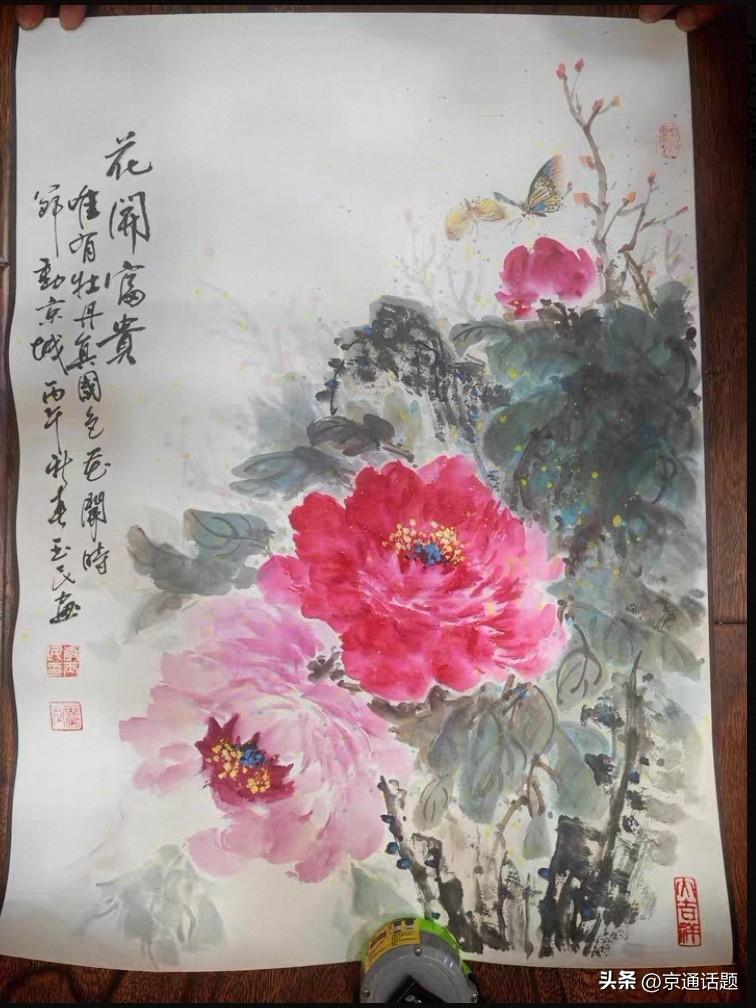 花開富貴
唯有牡丹真國色花開時
節動京城 丙午新春玉民畫
大吉祥
头条 @京通话题